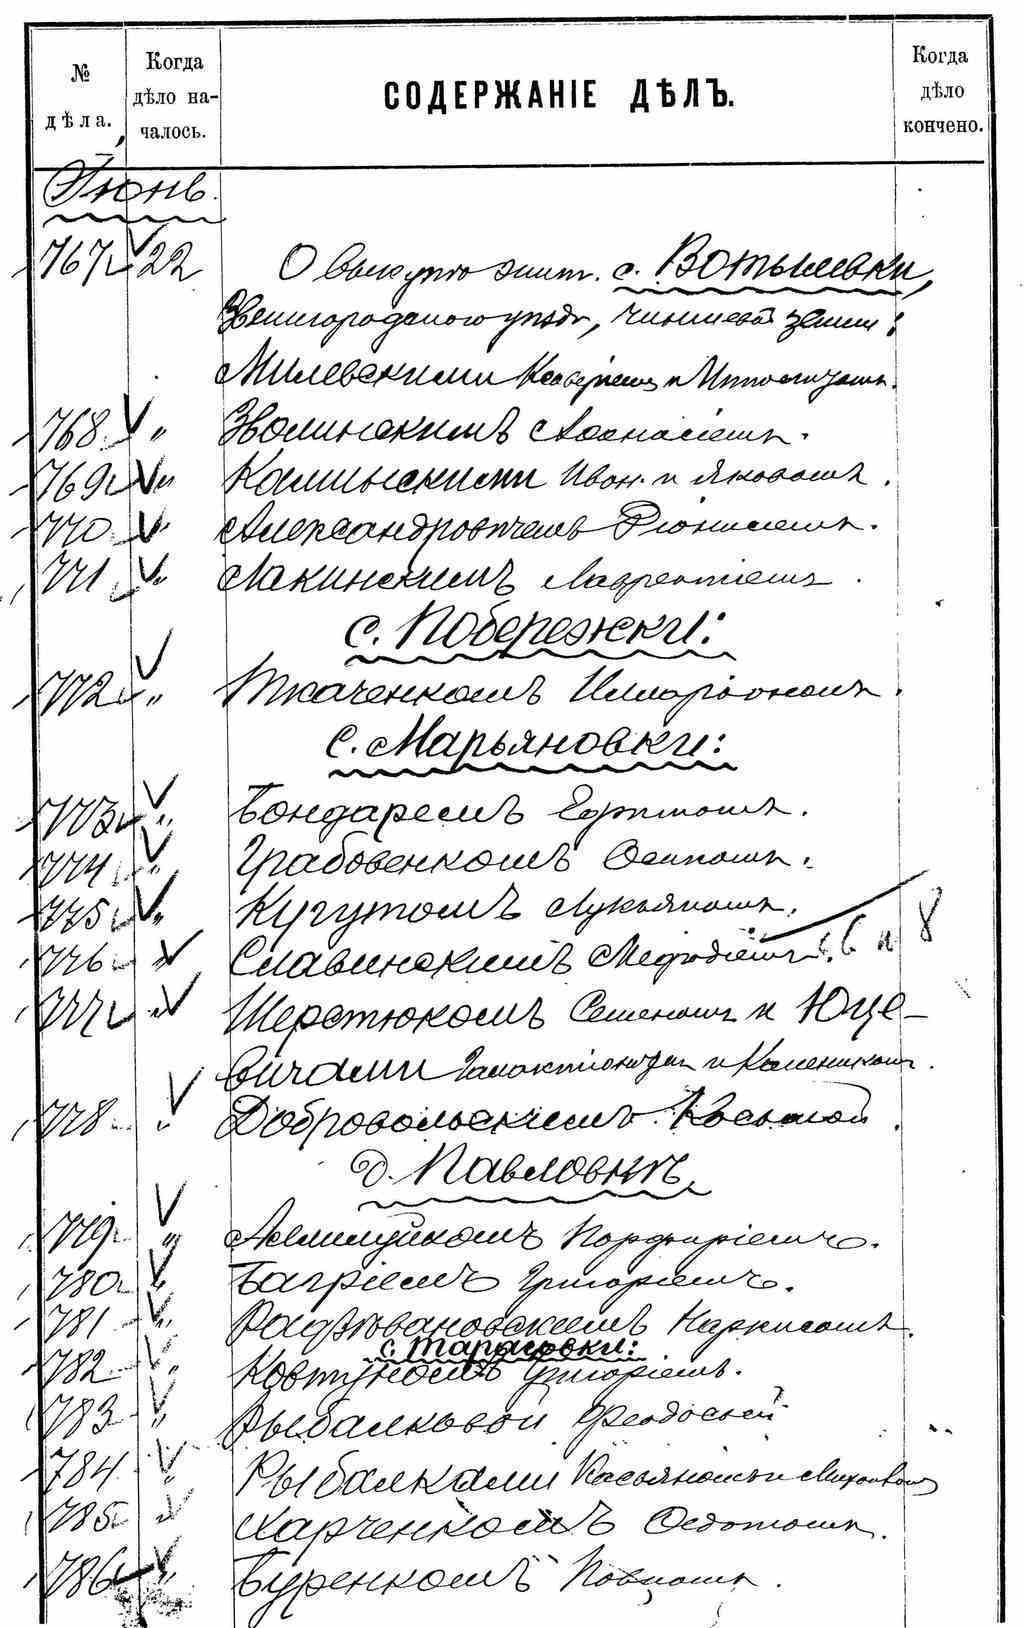 № дѣла.
Когда дѣло началось.
СОДЕРЖАНІЕ ДѢЛЪ.
Когда дѣло кончено.
Іюнь.
767 22 О выкупѣ жит. с. Вотылевки,
Звенигородскаго уѣзда, чиншевой земли:
Милевскими Ксаверіемъ и
768 " Зволинскимъ Аѳанасіемъ.
769 " Калинскими Иван. и Яковомъ.
770 " Александровичемъ Діонисіемъ.
771 " Лакинскимъ Лаврентіемъ.
с. Побережки:
772 " Ткаченкомъ Илларіономъ.
с. Марьяновки:
773 " Бондаремъ Ефимомъ.
774 " Грабовенкомъ Осипомъ.
775 " Кугутомъ Лукьяномъ.
776 " Славинскимъ Меѳодіемъ. 6 и 8
777 " Шерстюкомъ Семеномъ и Юце-
вичами Галактіономъ и Калеником.
778 " Добровольскимъ Косьмой.
д. Павловки
779 " Порфиріемъ.
780 " Багріемъ Григоріемъ.
781 " Наркисомъ.
с. Тарасовки:
782 " Ковтуномъ Григоріемъ.
783 " Рыбалковой Феодосіей
784 " Рыбалками Касьяномъ и
785 " Харченкомъ Федотомъ.
786 " Буренкомъ Павломъ.